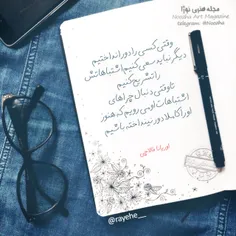 مجله هنری نوژا
Nozsha Art Magazine
telegram: @Nozsha
وقتی کسی را دور انداختیم
دیگر نباید سعی کنیم اشتباهاتش
را تشریح کنیم
تا وقتی دنبال چراهای
اشتباهات او می رویم که هنوز
او را کاملا دور نینداخته باشیم
اوریانا فالاچی
@rayehe__